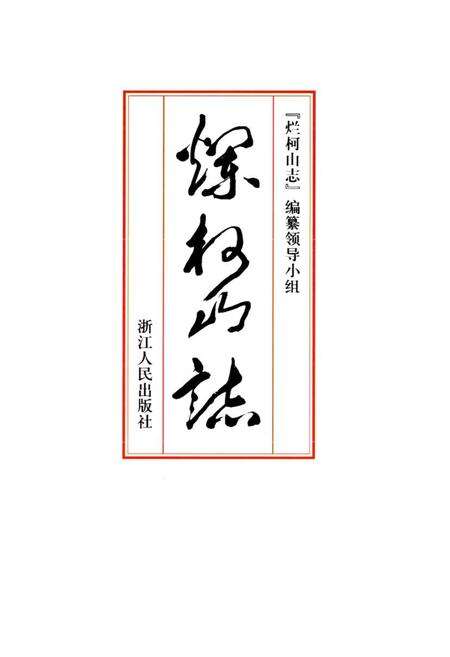 『烂柯山志』编纂领导小组
爛柯山誌
浙江人民出版社